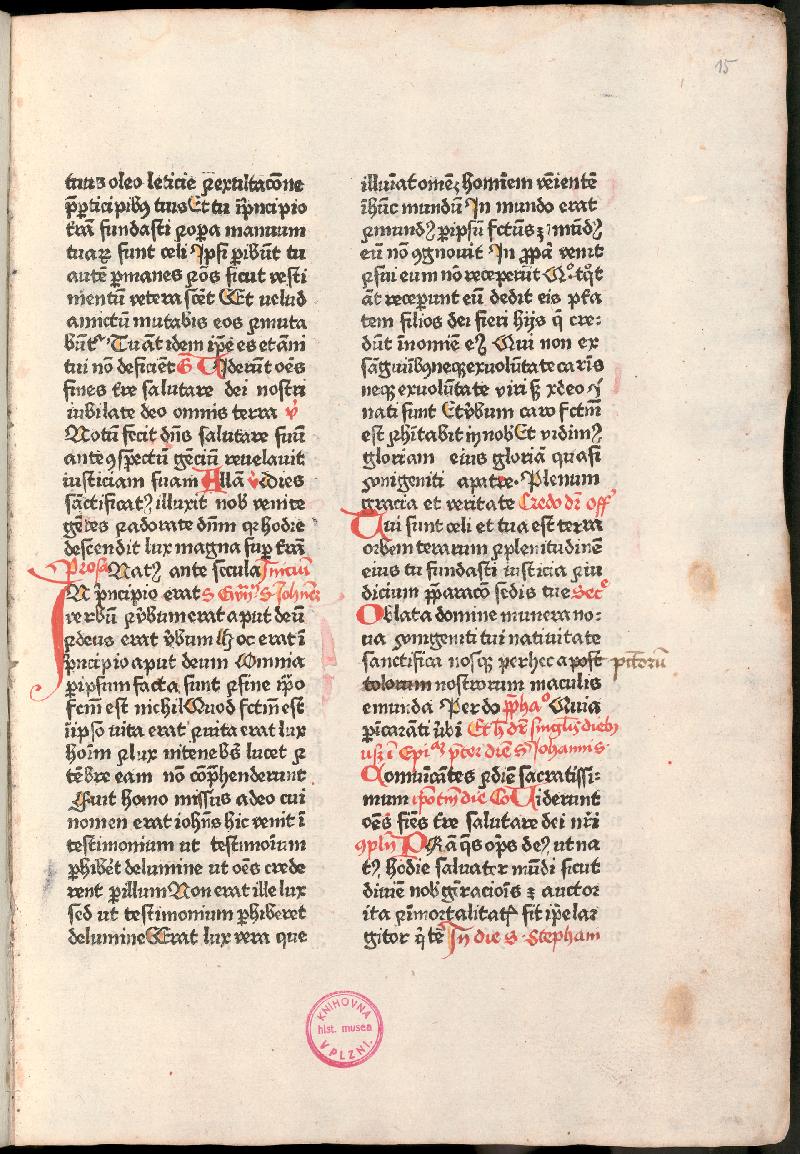 15
tuus oleo leticie ⁊ exultacōne
p̄ p̱ticipibꝰ tuis Et tu ī pͥncipio
t̄rā fundasti ⁊ op̱a manuum
tuaꝝ sunt celi Ipsi p̱ibūt tu
autē p̱manes ⁊ oēs sicut vesti
mentū veterascēt Et uelud
amictū mutabis eos ⁊ muta
būtᷣ Tu āt idem ip̄e es et āni
tui nō deficiēt G̃ Viderūt oēs
fines t̄re salutare dei nostri
iubilate deo omnis terra v̓
Notū fecit dn̄s salutare suū
ante ꝯspectū genciū reuelauit
iusticiam suam Allā v̓ dies
sāctificatꝰ illuxit nob̄ venite
gētes ⁊ adorate dnm̄ qꝛ hodie
descendit lux magna suꝑ t̄rā
Prosa Natꝰ ante secula Iniciū
IN pͥncipio erat s Ewͣnͥ s Iohn̄es
verbū ⁊ v̓bum erat aput deū
⁊ deus erat v̓bum hoc erat ī
pͥncipio aput deum Omnia
ꝑ ipsum facta sunt ⁊ sine ip̄o
fcm̄ est nichil Quod fctm̄ est
ī ip̄so uita erat ⁊ uita erat lux
hoīm ⁊ lux ī tenebͥs lucet ⁊
tēbre eam nō cōp̱henderunt
Fuit homo missus a deo cui
nomen erat ioh̄ns hic venit ī
testimonium ut testimoīum
ꝑhibēt de lumine ut oēs crede
rent ꝑ illum Non erat ille lux
sed ut testimonium ꝑhiberet
de lumine Erat lux vera que
illuīat omēꝫ homīem veīentē
ī hūc mundū In mundo erat
⁊ mundꝰ ꝑ ipsū fctūs ⁊ mūdꝰ
eū nō ꝯgnouit In ꝓpͥa venit
⁊ sui eum nō receperūt Qͦ tqͦt
āt recepunt eū dedit eis pt̄a
tem filios dei fieri hijs q̄ cre⸗
dūt ī nomīe eiꝰ Qui non ex
sāguiībꝰ neqꝫ ex uolūtate carīs
neqꝫ ex uolūtate viri sꝫ x deo
nati sunt Et v̓bum caro fctm̄
est ⁊ hītabit in nob̄ Et vidimꝰ
gloriam eius gloriā quasi
vnigeniti a patre. Plenum
gracia et veritate Credo dr̄ off̓
Tui sunt celi et tua est terra
orbem terarum ⁊ plenitudinē
eius tu fundasti iusticia ⁊ iu
dicium p̄paracō sedis tue Secͦ
Oblata domine munera no⸗
ua vnigeniti tui natiuitate
sanctifica nosqꝫ per hec a post pctorū
tolorum nostrorum maculis
emunda Per do pp̄haͦ Quia
ꝑ īcarāti v̓bi Et h̄ dr̄ singl̄is diebꝫ
usqꝫ ī Epiͣꝫ pͥter diē s Iohannis
Comuīcātes ⁊ diē sacratissi⸗
mum ip̄otm̄ die Cō Viderunt
oēs fiēs t̄re salutare dei nr̄i
ꝯpln̄ PRā q̄s op̄s deꝰ ut na
tꝰ hodie saluatr mūdi sicut
diuīe nob̄ gn̄racioīs ⁊ auctor
ita ⁊ īmortalitatꝭ sit ip̄e lar
gitor q̄ tē In die s Stephani
KNIHOVNA
hist. musea
V PLZNI.